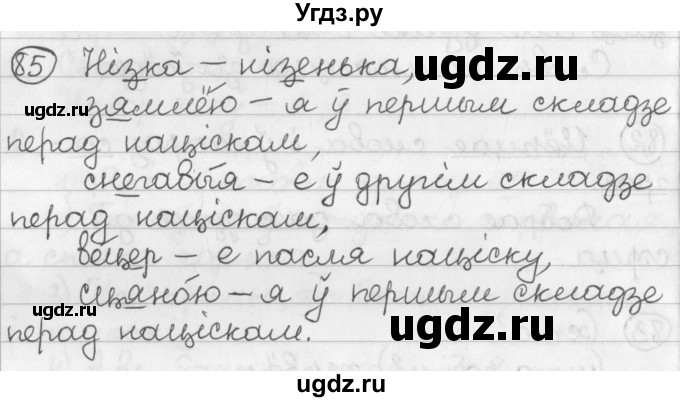 Угдз.ру
85 Нізка – нізенька,
зямлёю – я ў першым складзе
перад націскам,
снегавыя – е ў другім складзе
перад націскам,
вецер – е пасля націску,
сцяною – я ў першым складзе
перад націскам.
ugdz.ru
ugdz.ru
ugdz.ru
ugdz.ru
ugdz.ru
ugdz.ru